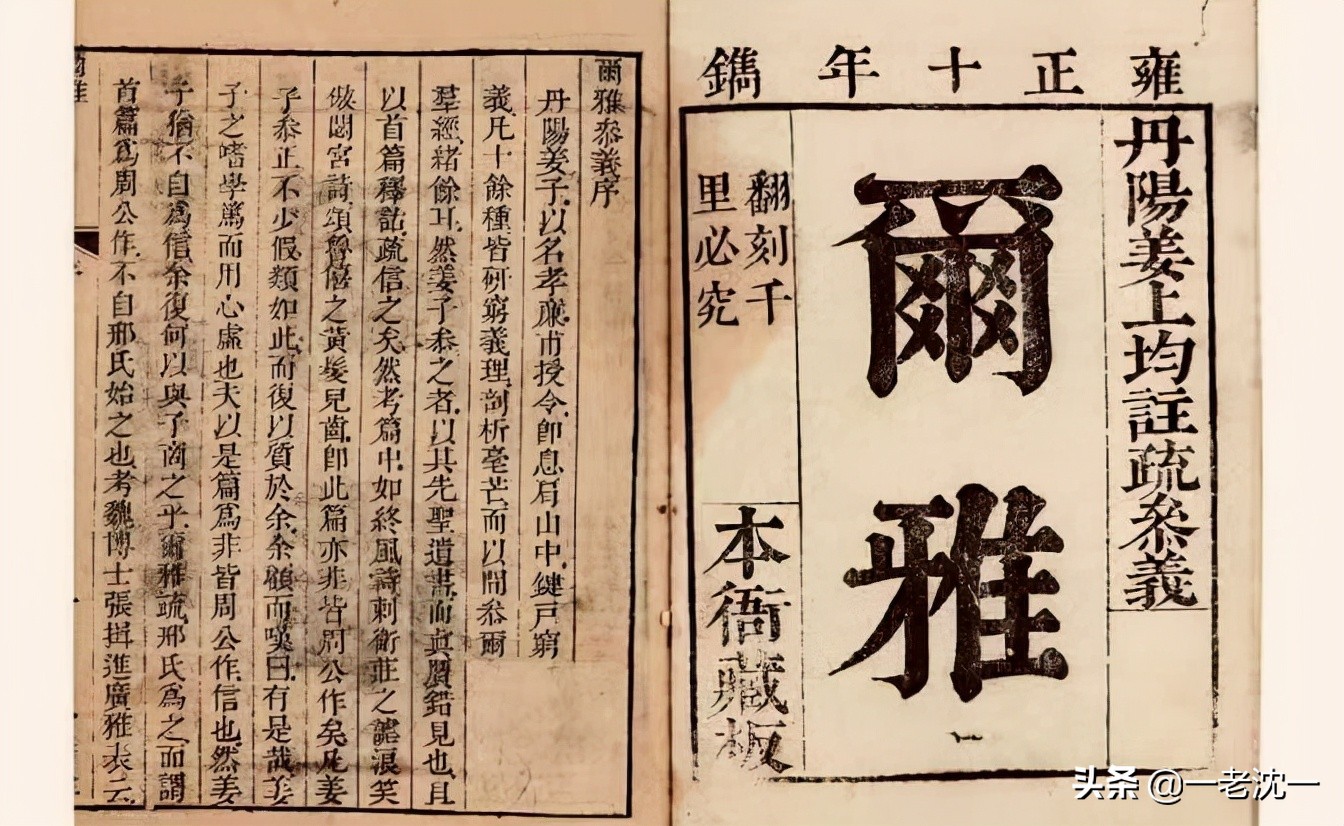 雍正十年鐫
丹陽姜上均註疏叅義
爾雅
一
翻刻千
里必究
本衙藏板
爾雅叅義序
丹陽姜子以名孝廉甫授令卽息肩山中鍵戸窮
義凡十餘種皆研窮義理剖析毫芒而以閒叅爾
羣經緒餘耳然姜子叅之者以其先聖遺書而眞贋錯見也且
以首篇釋詁疏信之矣然考篇中如終風詩刺衛莊之謔浪笑
敖閟宮詩頌魯僖之黃髮兒齒卽此篇亦非皆周公作矣凡姜
子叅正不少假類如此而復以質於余余顧而嘆曰有是哉姜
子之嗜學篤而用心虛也夫以是篇爲非皆周公作信也然姜
子猶不自爲信余復何以與子商之乎爾雅疏邢氏爲之而謂
首篇爲周公作不自邢氏始之也考魏博士張揖進廣雅表云
頭条 @一老沈一